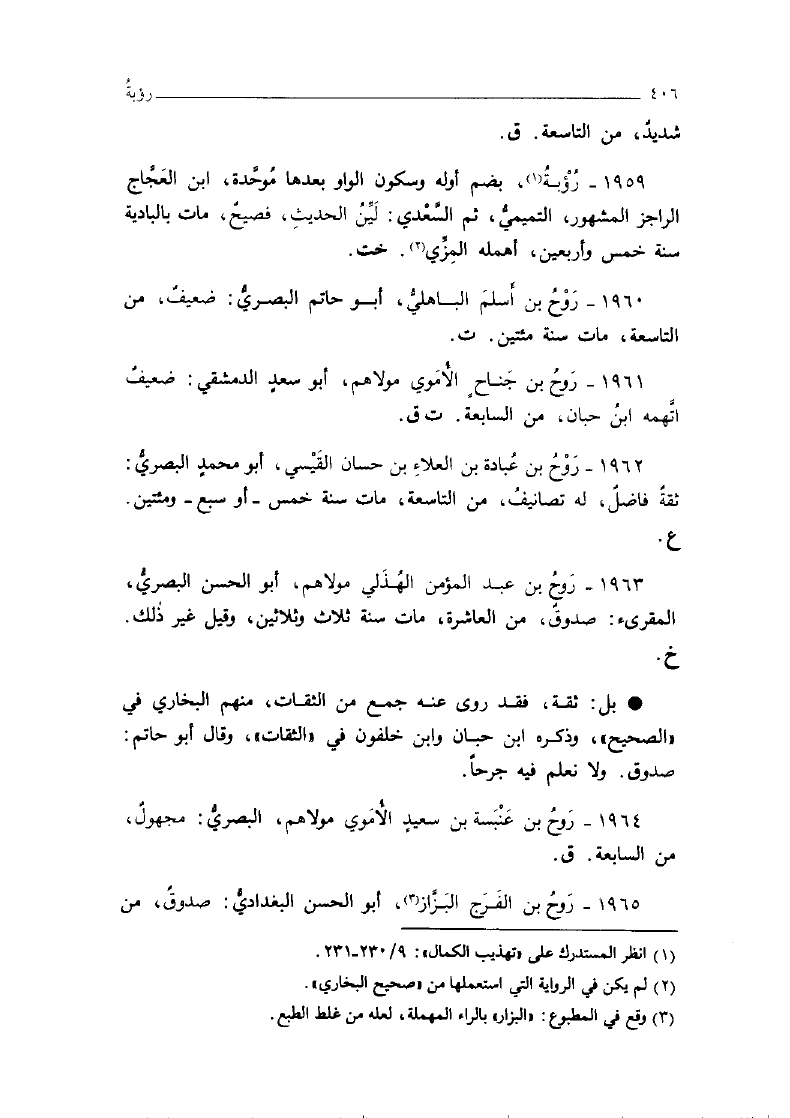 ٤٠٦ رؤبةُ
شديدٌ، من التاسعة. ق.
١٩٥٩ ـ رُؤْبـةُ(١)، بضم أوله وسكون الواو بعدها مُوحَّدة، ابن العَجَّاج
الراجز المشهور، التميميُّ، ثم السَّعْدي: لَيِّنُ الحديثِ، فصيحٌ، مات بالبادية
سنة خمس وأربعين، أهمله المِزِّي(٢). خت.
١٩٦٠ ـ رَوْحُ بن أَسلمَ البـاهليُّ، أبـو حاتم البصـريُّ: ضعيفٌ، من
التاسعة، مات سنة مئتين. ت.
١٩٦١ ـ رَوحُ بن جَنـاحٍ الأُمَوي مولاهم، أبو سعدٍ الدمشقي: ضعيفٌ
اتَّهمه ابنُ حبان، من السابعة. ت ق.
١٩٦٢ ـ رَوْحُ بن عُبادة بن العلاءِ بن حسان القَيْسي، أبو محمدٍ البصريُّ:
ثقةٌ فاضلٌ، له تصانيفُ، من التاسعة، مات سنة خمس ـ أو سبع ـ ومئتين.
ع.
١٩٦٣ ـ رَوحُ بن عبـد المؤمن الهُـذَلي مولاهم، أبو الحسن البصريُّ،
المقرىء: صدوقٌ، من العاشرة، مات سنة ثلاث وثلاثين، وقيل غير ذٰلك.
خ.
● بل: ثقـة، فقـد روى عنـه جمـع من الثقـات، منهم البخاري في
«الصحيح»، وذكـره ابن حبـان وابن خلفون في «الثقات»، وقال أبو حاتم:
صدوق. ولا نعلم فيه جرحاً.
١٩٦٤ ـ رَوحُ بن عَنْبَسة بن سعيدٍ الأُمَوي مولاهم، البصريُّ: مجهولٌ،
من السابعة. ق.
١٩٦٥ ـ رَوحُ بن الفَـرَج البَـزَّاز(٣)، أبو الحسن البغداديُّ: صدوقٌ، من
(١) انظر المستدرك على «تهذيب الكمال»: ٩/ ٢٣٠ـ٢٣١.
(٢) لم يكن في الرواية التي استعملها من «صحيح البخاري».
(٣) وقع في المطبوع: «البزار» بالراء المهملة، لعله من غلط الطبع.